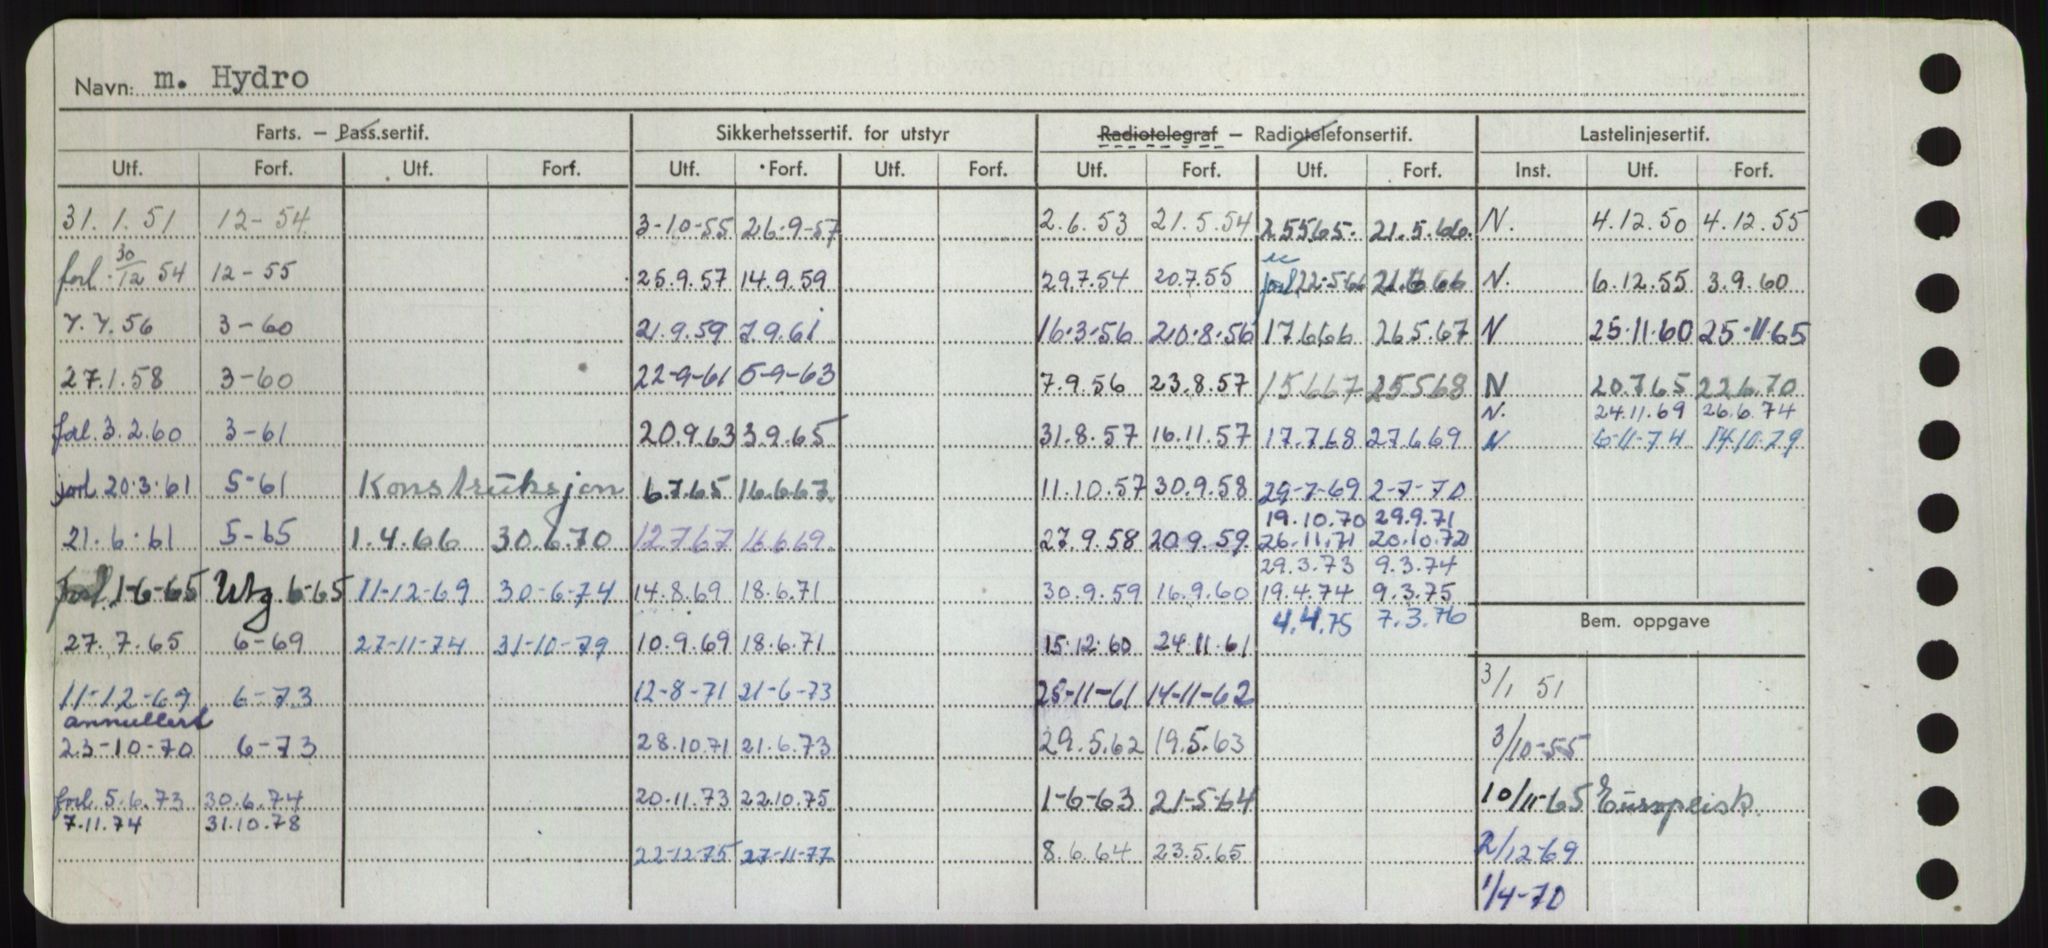 Navn: m. Hydro
Farts. – Pass.sertif. Sikkerhetssertif. for utstyr Radiotelegraf – Radiotelefonsertif. Lastelinjesertif.
Utf. Forf. Utf. Forf. Utf. Forf. Utf. Forf. Utf. Forf. Utf. Forf. Inst. Utf. Forf.
31. 1. 51 12- 54 3-10-55 26-9-57 2.6.53 21.5.54 25565. 21.5.66. N. 4.12.50 4.12.55
forl. 30/12 54 12-55 25.9.57 14.9.59 29.7.54 20.7.55 forl 22-5-66 21.6.66 N. 6.12.55 3.9.60
7.7.56 3-60 21.9.59 7.9.61 16.3.56 20.8.56 17.6.66 26.5.67 N 25.11.60 25.11.65
27.1.58 3-60 22-9-61 5-9-63 7.9.56 23.8.57 15.667 25568 N 20.7.65 22.6.70
N. 24.11.69 26.6.74
forl. 3.2.60 3-61 20.9.63 3.9.65 31.8.57 16.11.57 17.7.68 27.6.69 N 6-11-74 14.10.79
forl 20.3.61 5-61 Konstruksjon 6.7.65 16.6.67. 11.10.57 30.9.58 29-7-69 2-7-70
19.10.70 29.9.71
21.6.61 5-65 1.4.66 30.6.70 12.7.67 16.6.69. 27.9.58 20.9.59. 26.11.71 20.10.72
29.3.73 9.3.74
Forl. 1-6-65 Utg. 6-65 11-12-69 30-6-74 14.8.69 18.6.71 30.9.59 16.9.60 19.4.74 9.3.75
4.4.75 7.3.76
Bem. oppgave
27.7.65 6-69 27-11-74 31-10-79 10.9.69 18.6.71 15.12.60 24.11.61
11-12-69 6-73 12-8-71 21-6-73 28-11-61 14-11-62 3/1 51
annullert
23-10-70 6-73 28.10.71 21.6.73 29.5.62 19.5.63 3/10-55
forl 5.6.73 30.6.74 20.11.73 22.10.75 1-6-63 21-5-64 10/11-65 Europeisk.
7.11.74 31.10.78
22-12-75 27-11-77 8.6.64 23.5.65 2/12-69
1/4-70